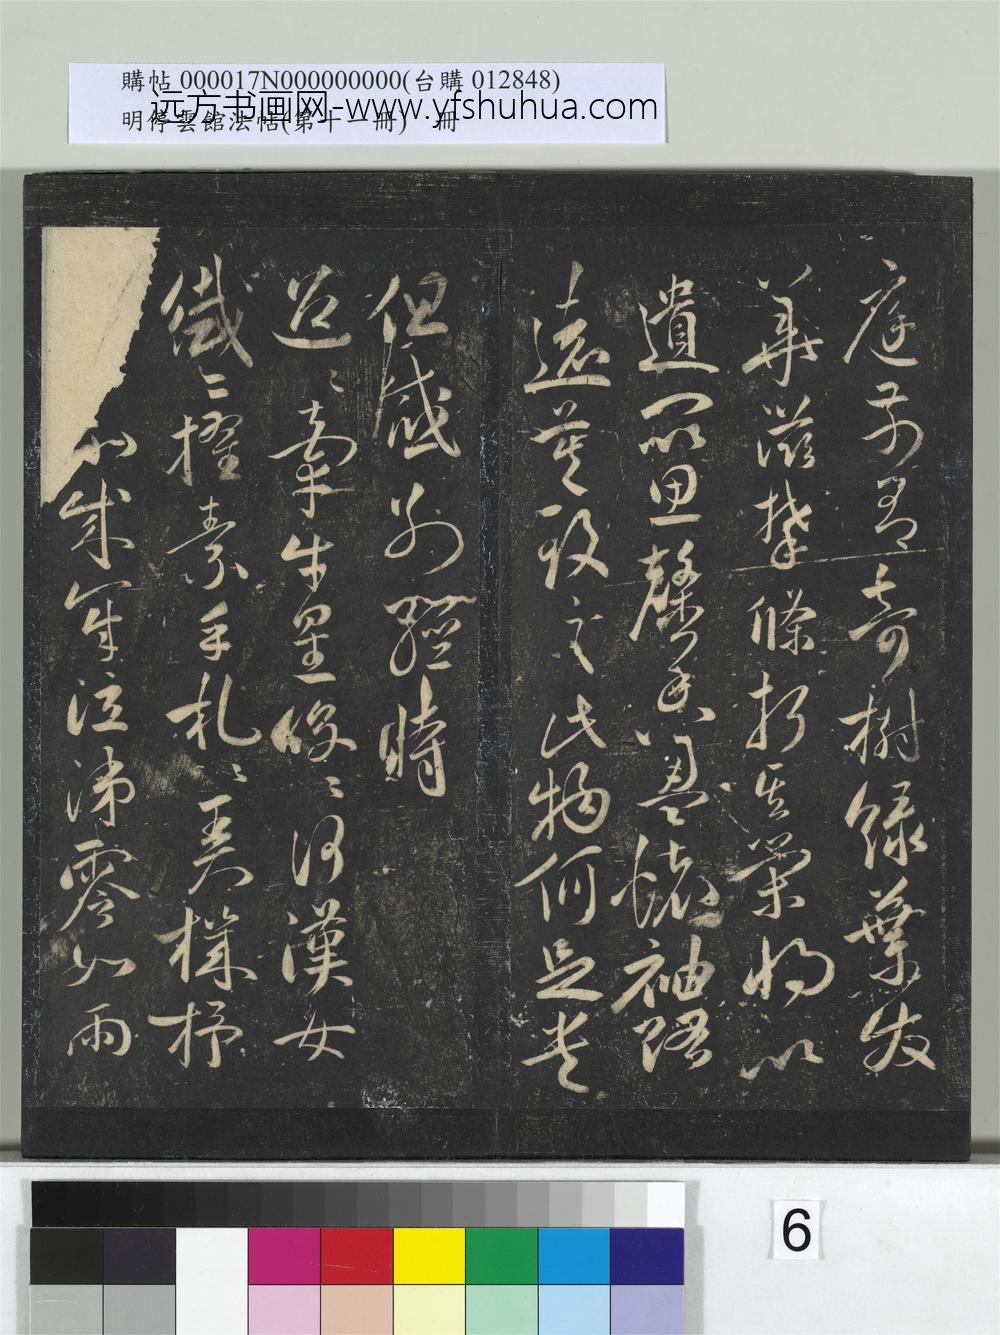 購帖 000017N000000000(台購 012848)
远方书画网-www.yfshuhua.com
明停雲館法帖(第十一冊) 冊
庭前有奇樹綠葉發
華滋攀條折其榮將以
遺所思馨香盈懷袖路
遠莫致之此物何足貴
但感別經時
迢〻牽牛星皎〻河漢女
纖〻擢素手札〻弄機杼
不成章泣涕零如雨
6